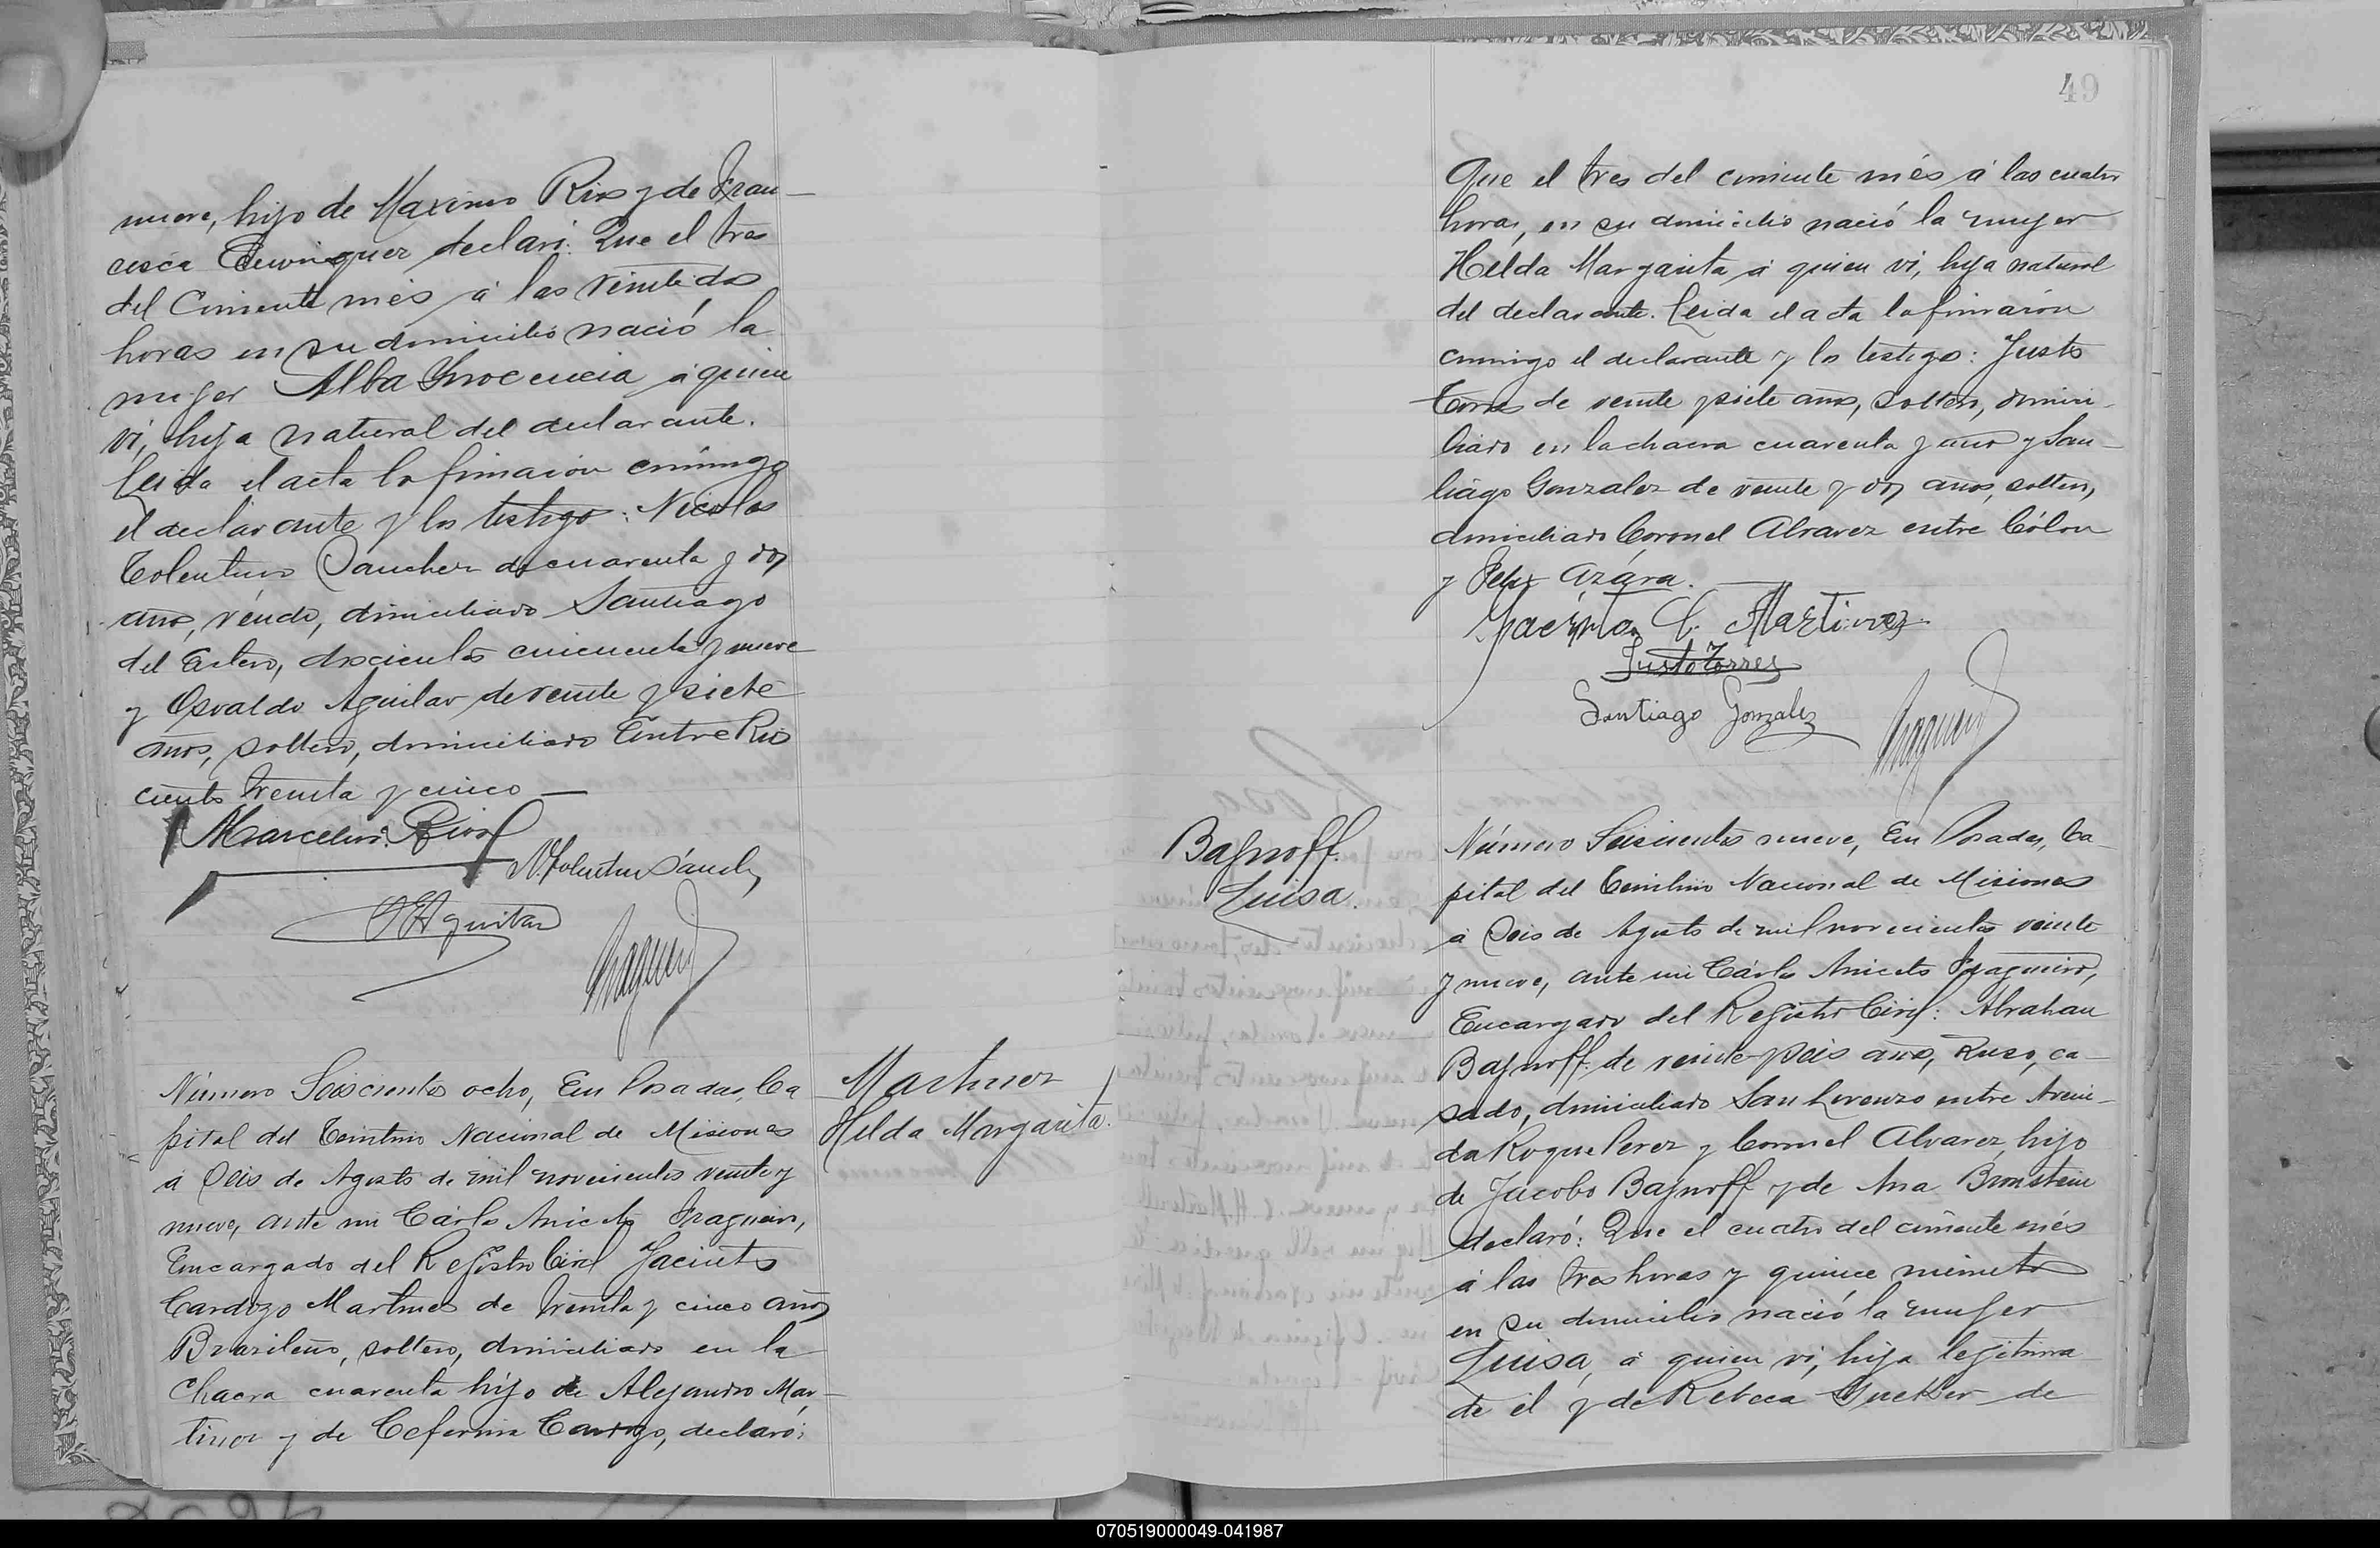 nueve, hijo de Maximo Rios y de Fran-
cisca declaró: Que el tres
del Corriente més á las veintedos
horas en su domicilio nació la
mujer Alba Ynocencia á quien
ví, hija natural del declarante.
Leida el acta la firmarón conmigo
el declarante y los testigos: Nicolas
Tolentino Sanchez de cuarenta y dos
años, viudo, domiciliado Santiago
del Estero, doscientos cincuenta y nueve
y Osvaldo Aguilar de veinte y siete
años, soltero, domiciliado Entre Rios
ciento treinta y cinco —
Marcelino Rios
N. Tolentino Sánchez
Aguilar
Fragueiro
Número Seiscientos ocho, En Posadas, Ca
pital del Territorio Nacional de Misiones
á Seis de Agosto de mil novecientos veinte y
nueve, ante mi Cárlos Aniceto Fragueiro,
Encargado del Registro Civil Jacinto
Cardozo Martines de treinta y cinco años
Brazileño, soltero, domiciliado en la
Chacra cuarenta hijo de Alejandro Mar-
tinez y de Ceferina Cardozo, declaró:
Martinez
Hilda Margarita.
49
Que el tres del corriente més á las cuatro
horas, en su domicilio nació la mujer
Hilda Margarita á quien ví, hija natural
del declarante. Leida el acta la firmarón
conmigo el declarante y los testigos: Justo
Torres de veinte y siete años, soltero, domici-
liado en la chacra cuarenta y uno y San-
tiágo Gonzalez de veinte y dos años, soltero,
domiciliado Coronel Alvarez entre Cólon
y Felix Azára.
Jacinto C. Martinez
Justo Torres
Santiago Gonzalez
Fragueiro
Bajnoff.
Luisa.
Número Seiscientos nueve, En Posadas, Ca-
pital del Territorio Nacional de Misiones
á Seis de Agosto de mil novecientos veinte
y nueve, ante mi Cárlos Aniceto Fragueiro,
Encargado del Registro Civil: Abrahan
Bajnoff. de veinte y seis años, Ruso, ca-
sado, domiciliado San Lorenzo entre Aveni-
da Roque Perez y Coronel Alvarez, hijo
de Jacobo Bajnoff y de Ana Bronstein
declaró: Que el cuatro del corriente més
á las tres horas y quince minutos
en su domicilio nació la mujer
Luisa, á quien ví, hija legitima
de el y de Rebeca de
070519000049-041987